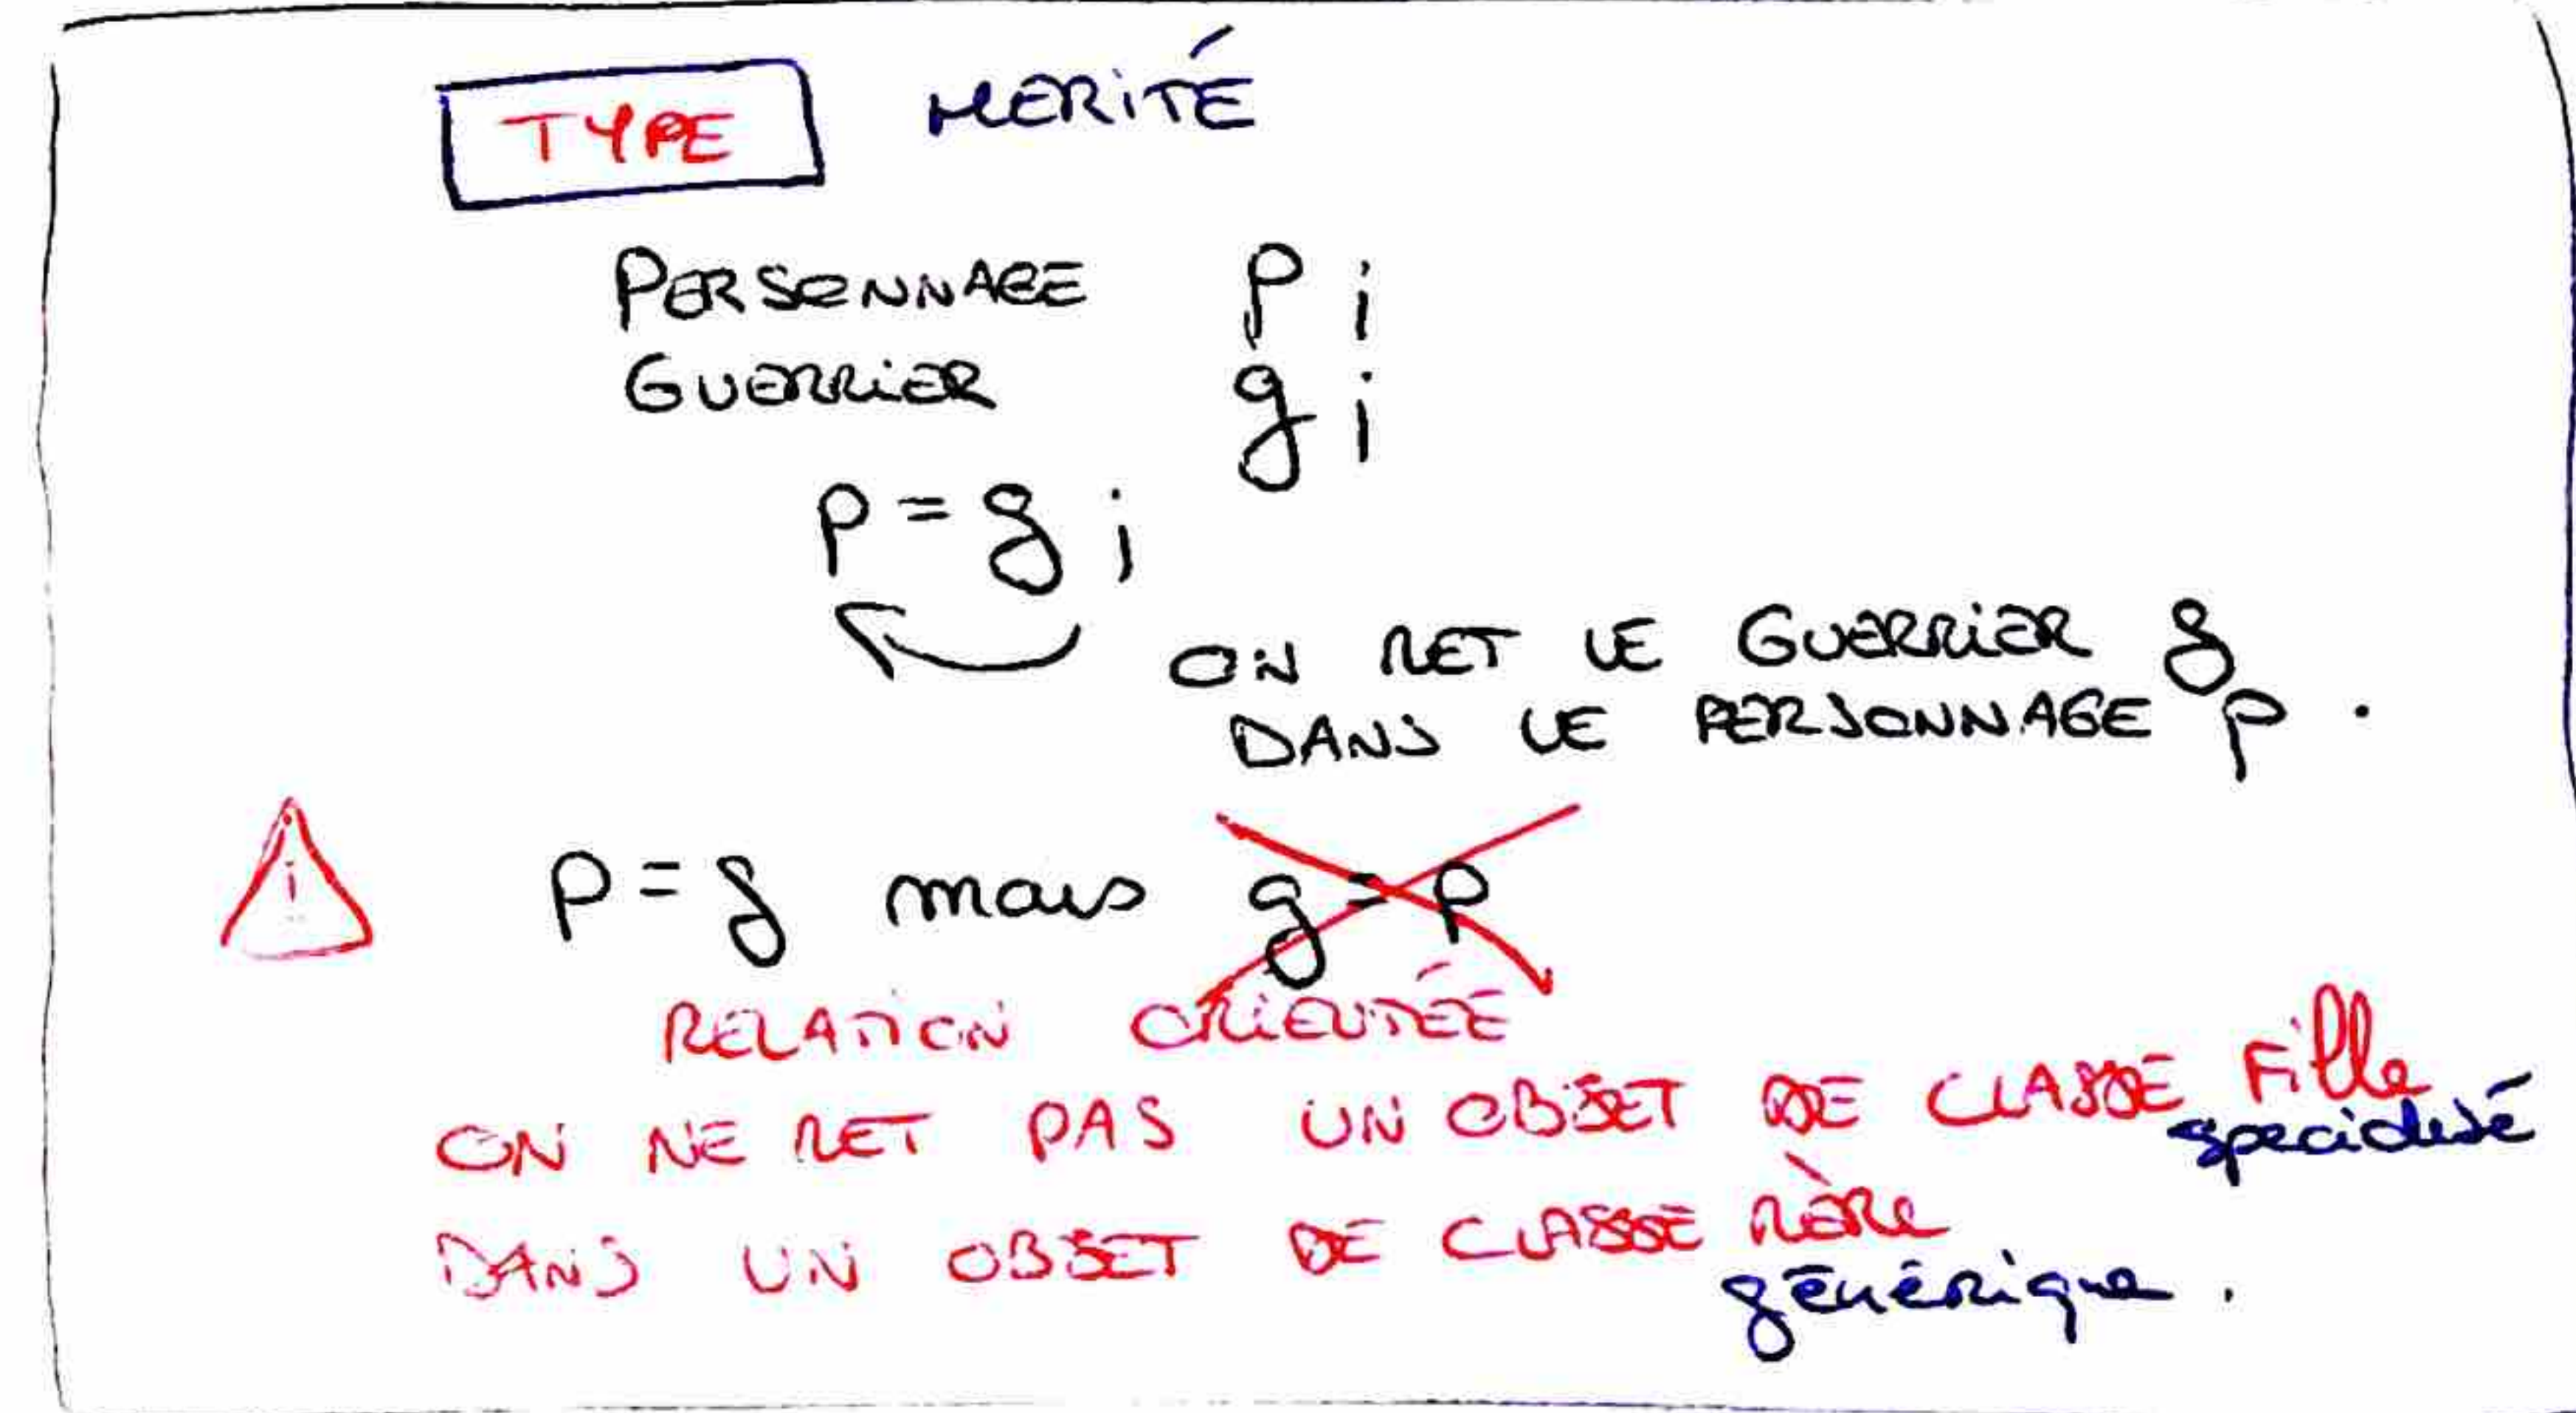 TYPE HERITÉ
PERSONNAGE p ;
GUERRIER g ;
p = g ;
ON MET LE GUERRIER g
DANS LE PERSONNAGE p .
! p = g mais g = p
RELATION ORIENTÉE
ON NE MET PAS UN OBJET DE CLASSE Fille
specialisé
DANS UN OBJET DE CLASSE MÈRE
générique .